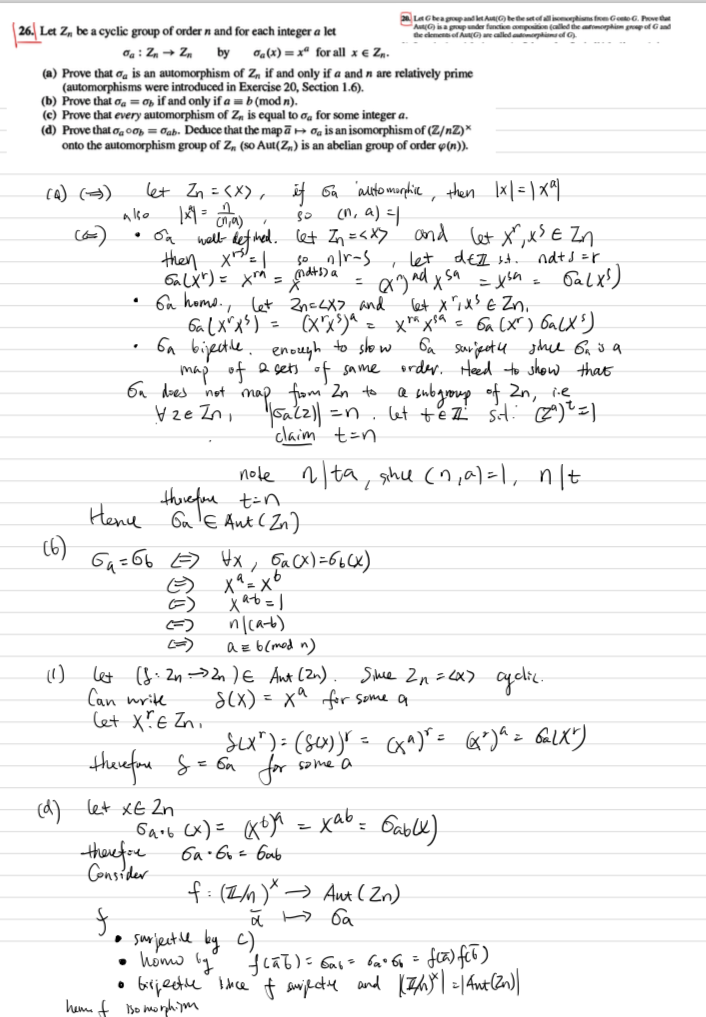 26. Let Zₙ be a cyclic group of order n and for each integer a let
σₐ : Zₙ → Zₙ by σₐ(x) = xᵃ for all x ∈ Zₙ.
(a) Prove that σₐ is an automorphism of Zₙ if and only if a and n are relatively prime
(automorphisms were introduced in Exercise 20, Section 1.6).
(b) Prove that σₐ = σ_b if and only if a ≡ b (mod n).
(c) Prove that every automorphism of Zₙ is equal to σₐ for some integer a.
(d) Prove that σₐ ∘ σ_b = σ_ab. Deduce that the map ā ↦ σₐ is an isomorphism of (Z/nZ)^×
onto the automorphism group of Zₙ (so Aut(Zₙ) is an abelian group of order φ(n)).
20. Let G be a group and let Aut(G) be the set of all isomorphisms from G onto G. Prove that
Aut(G) is a group under function composition (called the automorphism group of G and
the elements of Aut(G) are called automorphisms of G).
(a) (⇒) let Zn = <x>, if σa automorphic, then |x| = |x^a|
also |x^a| = n/(n,a), so (n, a) = 1
(⇐) • σa well defined. let Zn = <x> and let x^r, x^s ∈ Zn
then x^(r-s) = 1 so n | r-s, let d∈Z s.t. nd+s = r
σa(x^r) = x^ra = x^((nd+s)a) = (x^n)^ad x^sa = x^sa = σa(x^s)
• σa homo., let Zn = <x> and let x^r, x^s ∈ Zn,
σa(x^r x^s) = (x^r x^s)^a = x^ra x^sa = σa(x^r) σa(x^s)
• σa bijective. enough to show σa surjective since σa is a
map of 2 sets of same order. Need to show that
σa does not map from Zn to a subgroup of Zn, i.e
∀ z ∈ Zn, |σa(z)| = n. let t ∈ Z s.t. (z^a)^t = 1
claim t = n
note n | ta, since (n,a) = 1, n | t
therefore t = n
Hence σa ∈ Aut(Zn)
(b) σa = σb ⇔ ∀x, σa(x) = σb(x)
⇔ x^a = x^b
⇔ x^(a-b) = 1
⇔ n | (a-b)
⇔ a ≡ b (mod n)
(c) let (f: Zn → Zn) ∈ Aut(Zn). Since Zn = <x> cyclic.
Can write f(x) = x^a for some a
let x^r ∈ Zn,
f(x^r) = (f(x))^r = (x^a)^r = (x^r)^a = σa(x^r)
therefore f = σa for some a
(d) let x ∈ Zn
σa∘b (x) = (x^b)^a = x^ab = σab(x)
therefore σa ∘ σb = σab
Consider
f : (Z/n)^× → Aut(Zn)
ā ↦ σa
f
• surjective by c)
• homo by f(āb̄) = σab = σa∘σb = f(ā) f(b̄)
• bijective since f surjective and |(Z/n)^×| = |Aut(Zn)|
hence f isomorphism